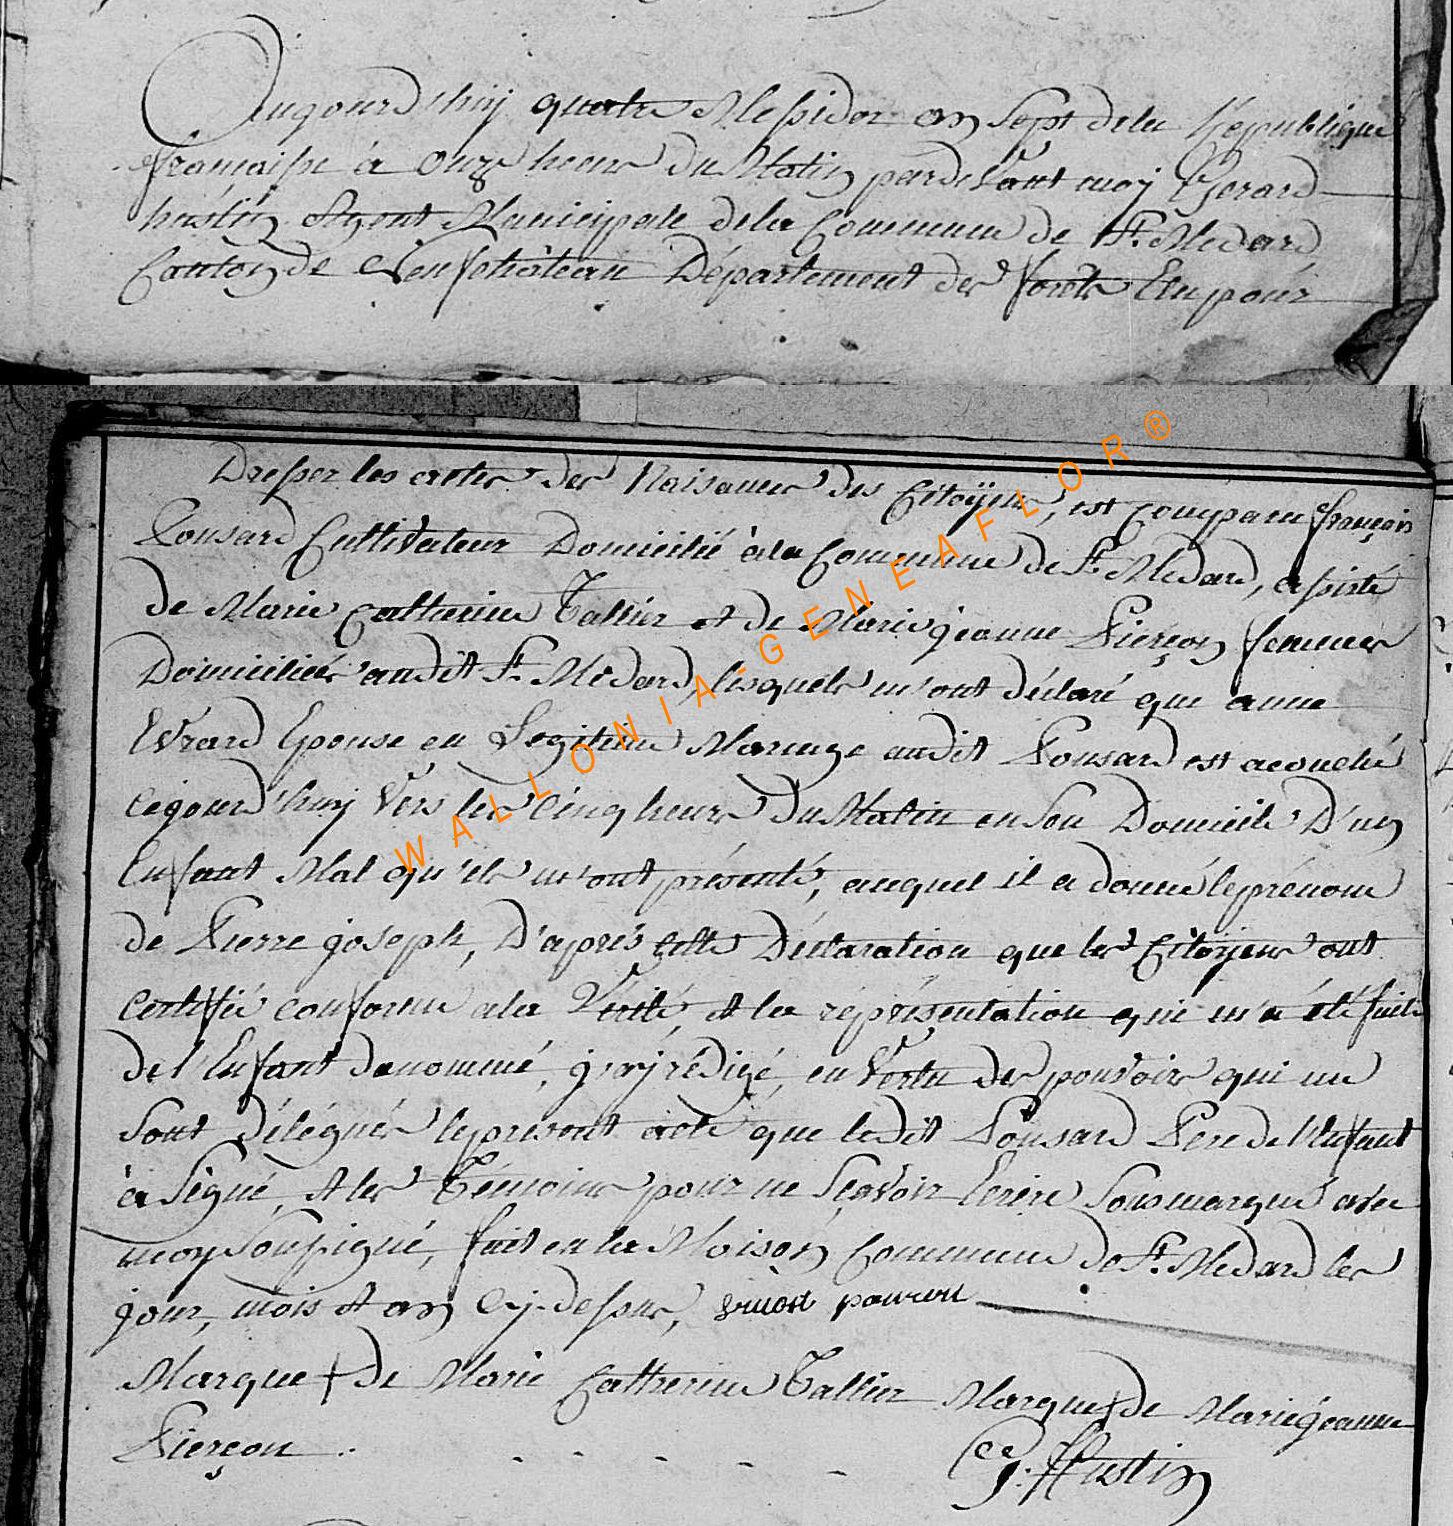 Aujourd'huy quatre Messidor an Sept de la Republique
françaisse à onze heur du Matin pardevant moy Gerard
hustin Agent Municipale de la Commune de St. Medard
Canton de Neufchâteau Département des forêts Elu pour
Dresser les actes des Naisances des Citoÿens, est comparu françois
Ponsard Cultivateur Domicilié à la Commune de St. Medard, assisté
de Marie Catherine Tallier et de Marie jeanne Pierçon femmes
Domiciliées audit St. Médard, lesquels m'ont déclaré que anne
Evrard Epouse en Legitime Mariage audit Ponsard est acouché
cejourd'huy Vers les Cinq heurs du Matin en son Domicile D'un
Enfant Mal qu'ils m'ont présenté, auquel il a donné le prénom
de Pierre joseph, D'aprés cette Déclaration que les Citoyens ont
Certifié conforme a la Vérité, et la représentation qui m'a été faite
de l'Enfant denommé, j'ay rédigé, en Vertu des pouvoirs qui me
Sont délégués le present acte que ledit Ponsard Pere de l'Enfant
à Signé, et les Témoins pour ne Sçavoir Ecrire Sousmarqué avec
moy Soussigné, fait en la Maison Commune de St. Medard les
jour, mois et an Cy-dessus,
Marque + de Marie Catherine Tallier Marque + de Marie jeanne
Pierçon
G. Hustin
WALLONIA-GENEAFLOR®